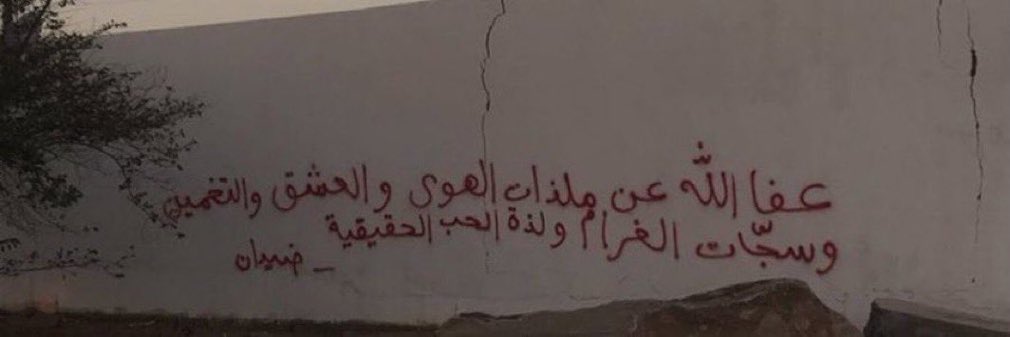 عفا الله عن ملذات الهوى والعشق والتغميض
وسجّات الغرام ولذة الحب الحقيقية
_ ضيدان